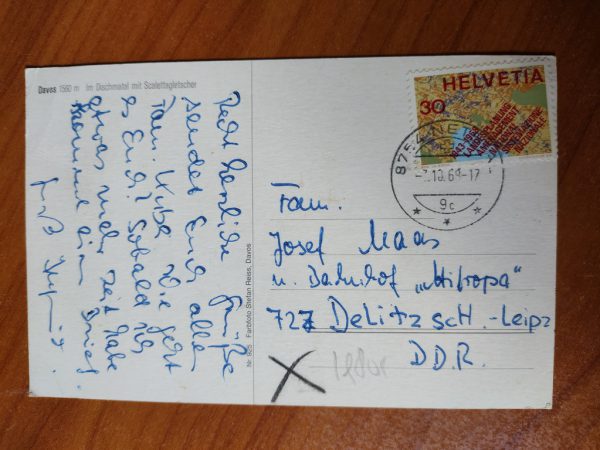 Davos 1560 m Im Dischmatal mit Scalettagletscher
Recht herzliche Grüße
sendet Euch allen
Fam. Wie geht
es Euch? Sobald ich
etwas mehr Zeit habe
kommt ein Brief.
Gruß
Nr. Farbfoto Stefan Reiss, Davos
HELVETIA
30
875
9c
Fam.
Josef Maas
u. Bahnhof „Mitropa"
727 Delitzsch.-Leipz
D.D.R.
X